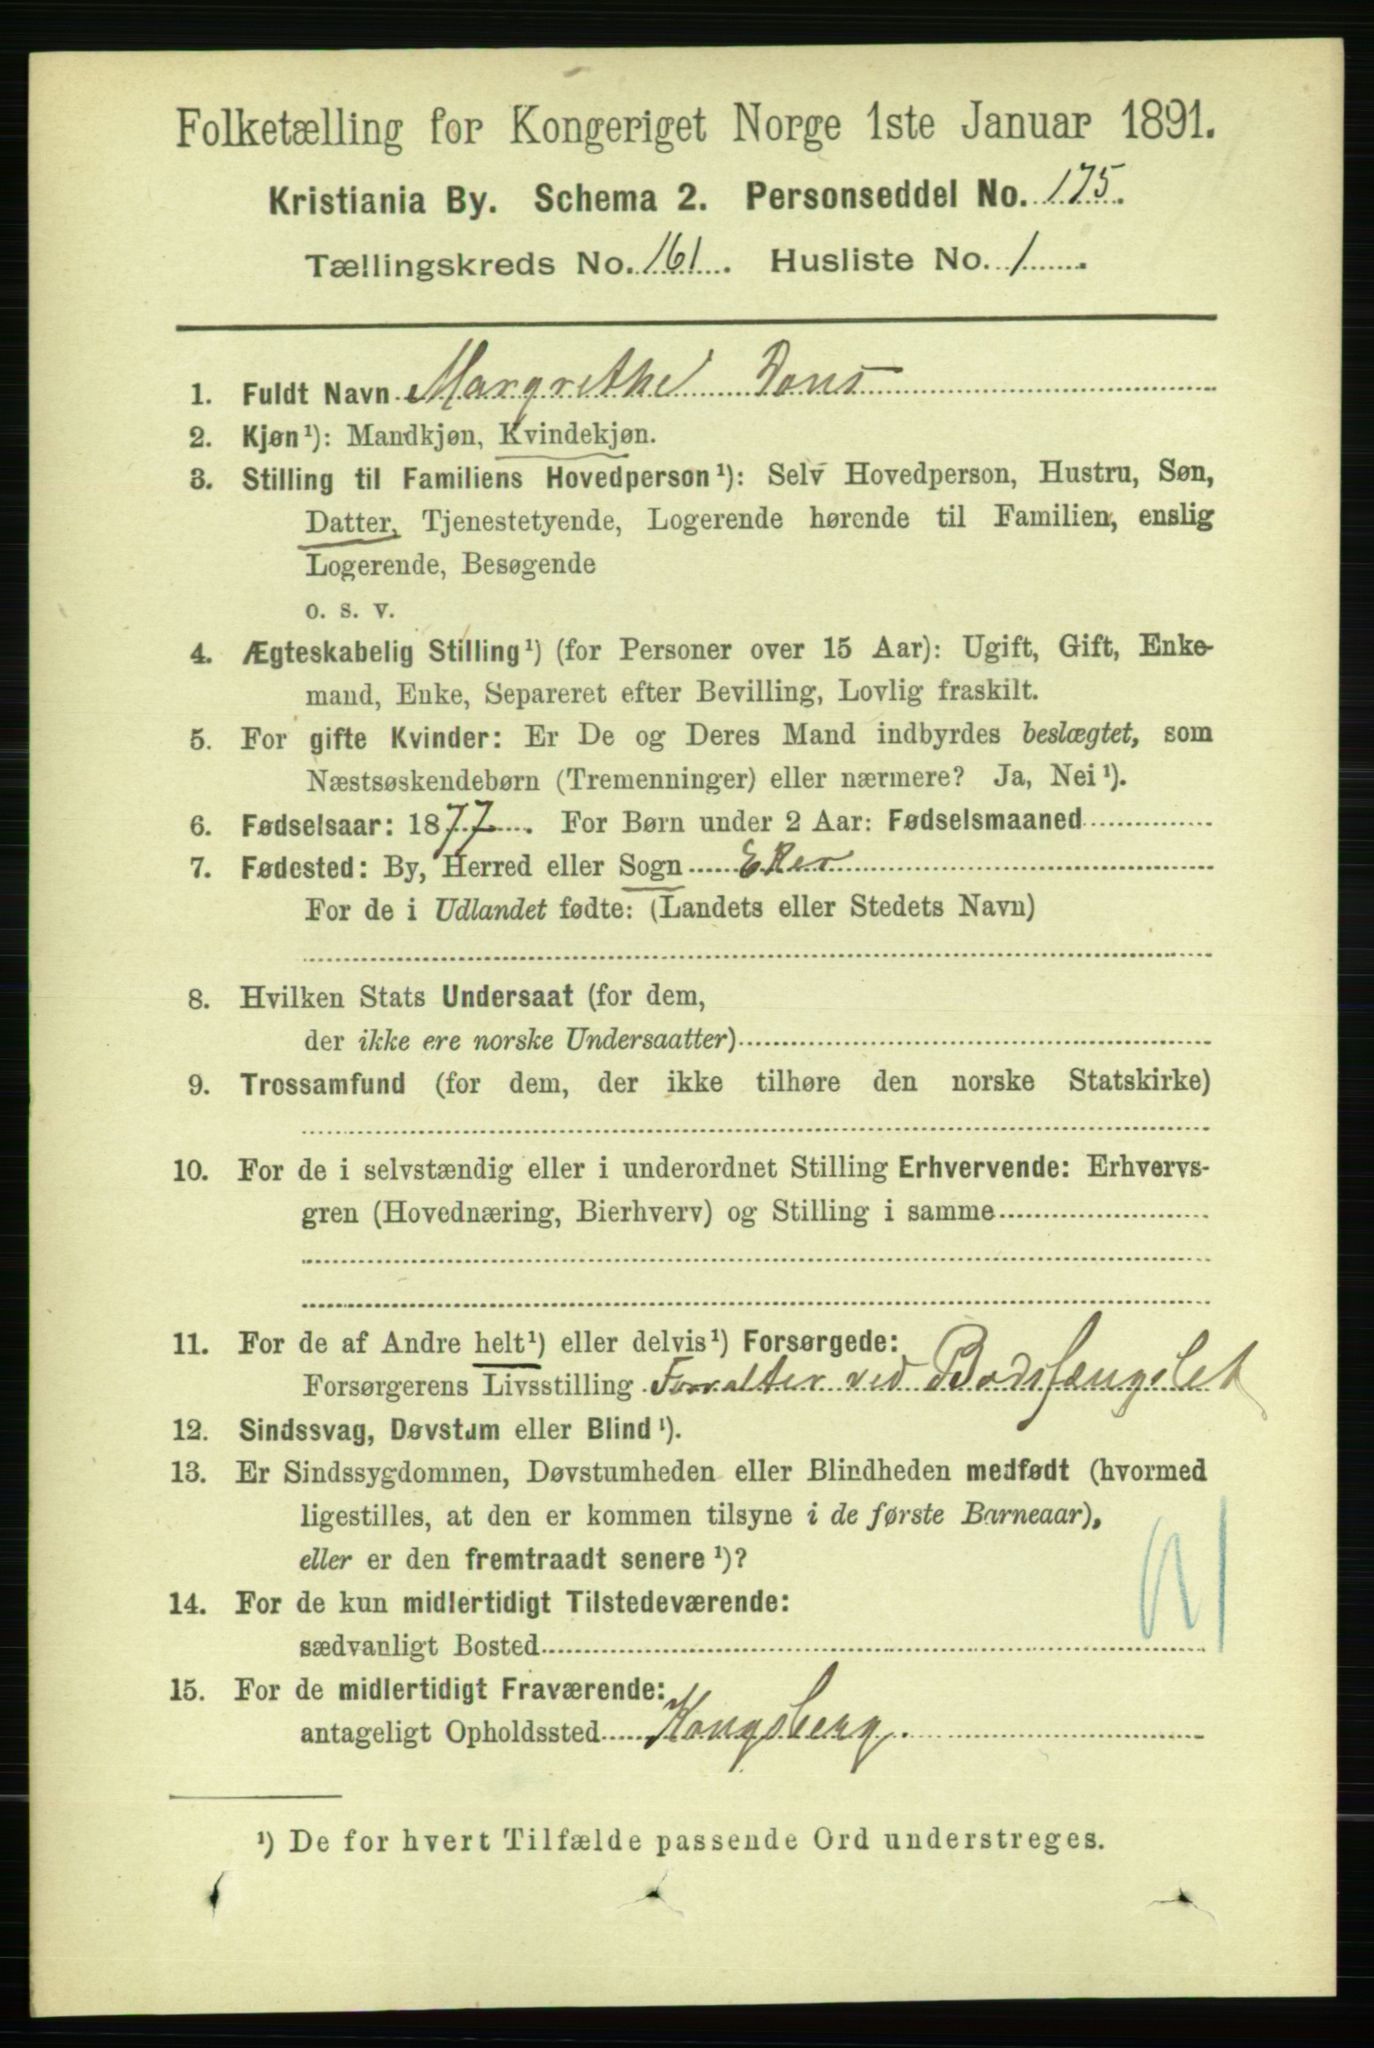 Folketælling for Kongeriget Norge 1ste Januar 1891.
Kristiania By. Schema 2. Personseddel No. 175.
Tællingskreds No. 161. Husliste No. 1
1. Fuldt Navn Margrethe Dons
2. Kjøn¹): Mandkjøn, Kvindekjøn.
3. Stilling til Familiens Hovedperson¹): Selv Hovedperson, Hustru, Søn,
Datter, Tjenestetyende, Logerende hørende til Familien, enslig
Logerende, Besøgende
o. s. v.
4. Ægteskabelig Stilling¹) (for Personer over 15 Aar): Ugift, Gift, Enke-
mand, Enke, Separeret efter Bevilling, Lovlig fraskilt.
5. For gifte Kvinder: Er De og Deres Mand indbyrdes beslægtet, som
Næstsøskendebørn (Tremenninger) eller nærmere? Ja, Nei¹).
6. Fødselsaar: 1877. For Børn under 2 Aar: Fødselsmaaned
7. Fødested: By, Herred eller Sogn Eker
For de i Udlandet fødte: (Landets eller Stedets Navn)
8. Hvilken Stats Undersaat (for dem,
der ikke ere norske Undersaatter)
9. Trossamfund (for dem, der ikke tilhøre den norske Statskirke)
10. For de i selvstændig eller i underordnet Stilling Erhvervende: Erhvervs-
gren (Hovednæring, Bierhverv) og Stilling i samme
11. For de af Andre helt¹) eller delvis¹) Forsørgede:
Forsørgerens Livsstilling Forvalter ved Bodsfængslet
12. Sindssvag, Døvstum eller Blind¹).
13. Er Sindssygdommen, Døvstumheden eller Blindheden medfødt (hvormed
ligestilles, at den er kommen tilsyne i de første Barneaar),
eller er den fremtraadt senere¹)?
14. For de kun midlertidigt Tilstedeværende:
sædvanligt Bosted
15. For de midlertidigt Fraværende:
antageligt Opholdssted Kongsberg.
¹) De for hvert Tilfælde passende Ord understreges.